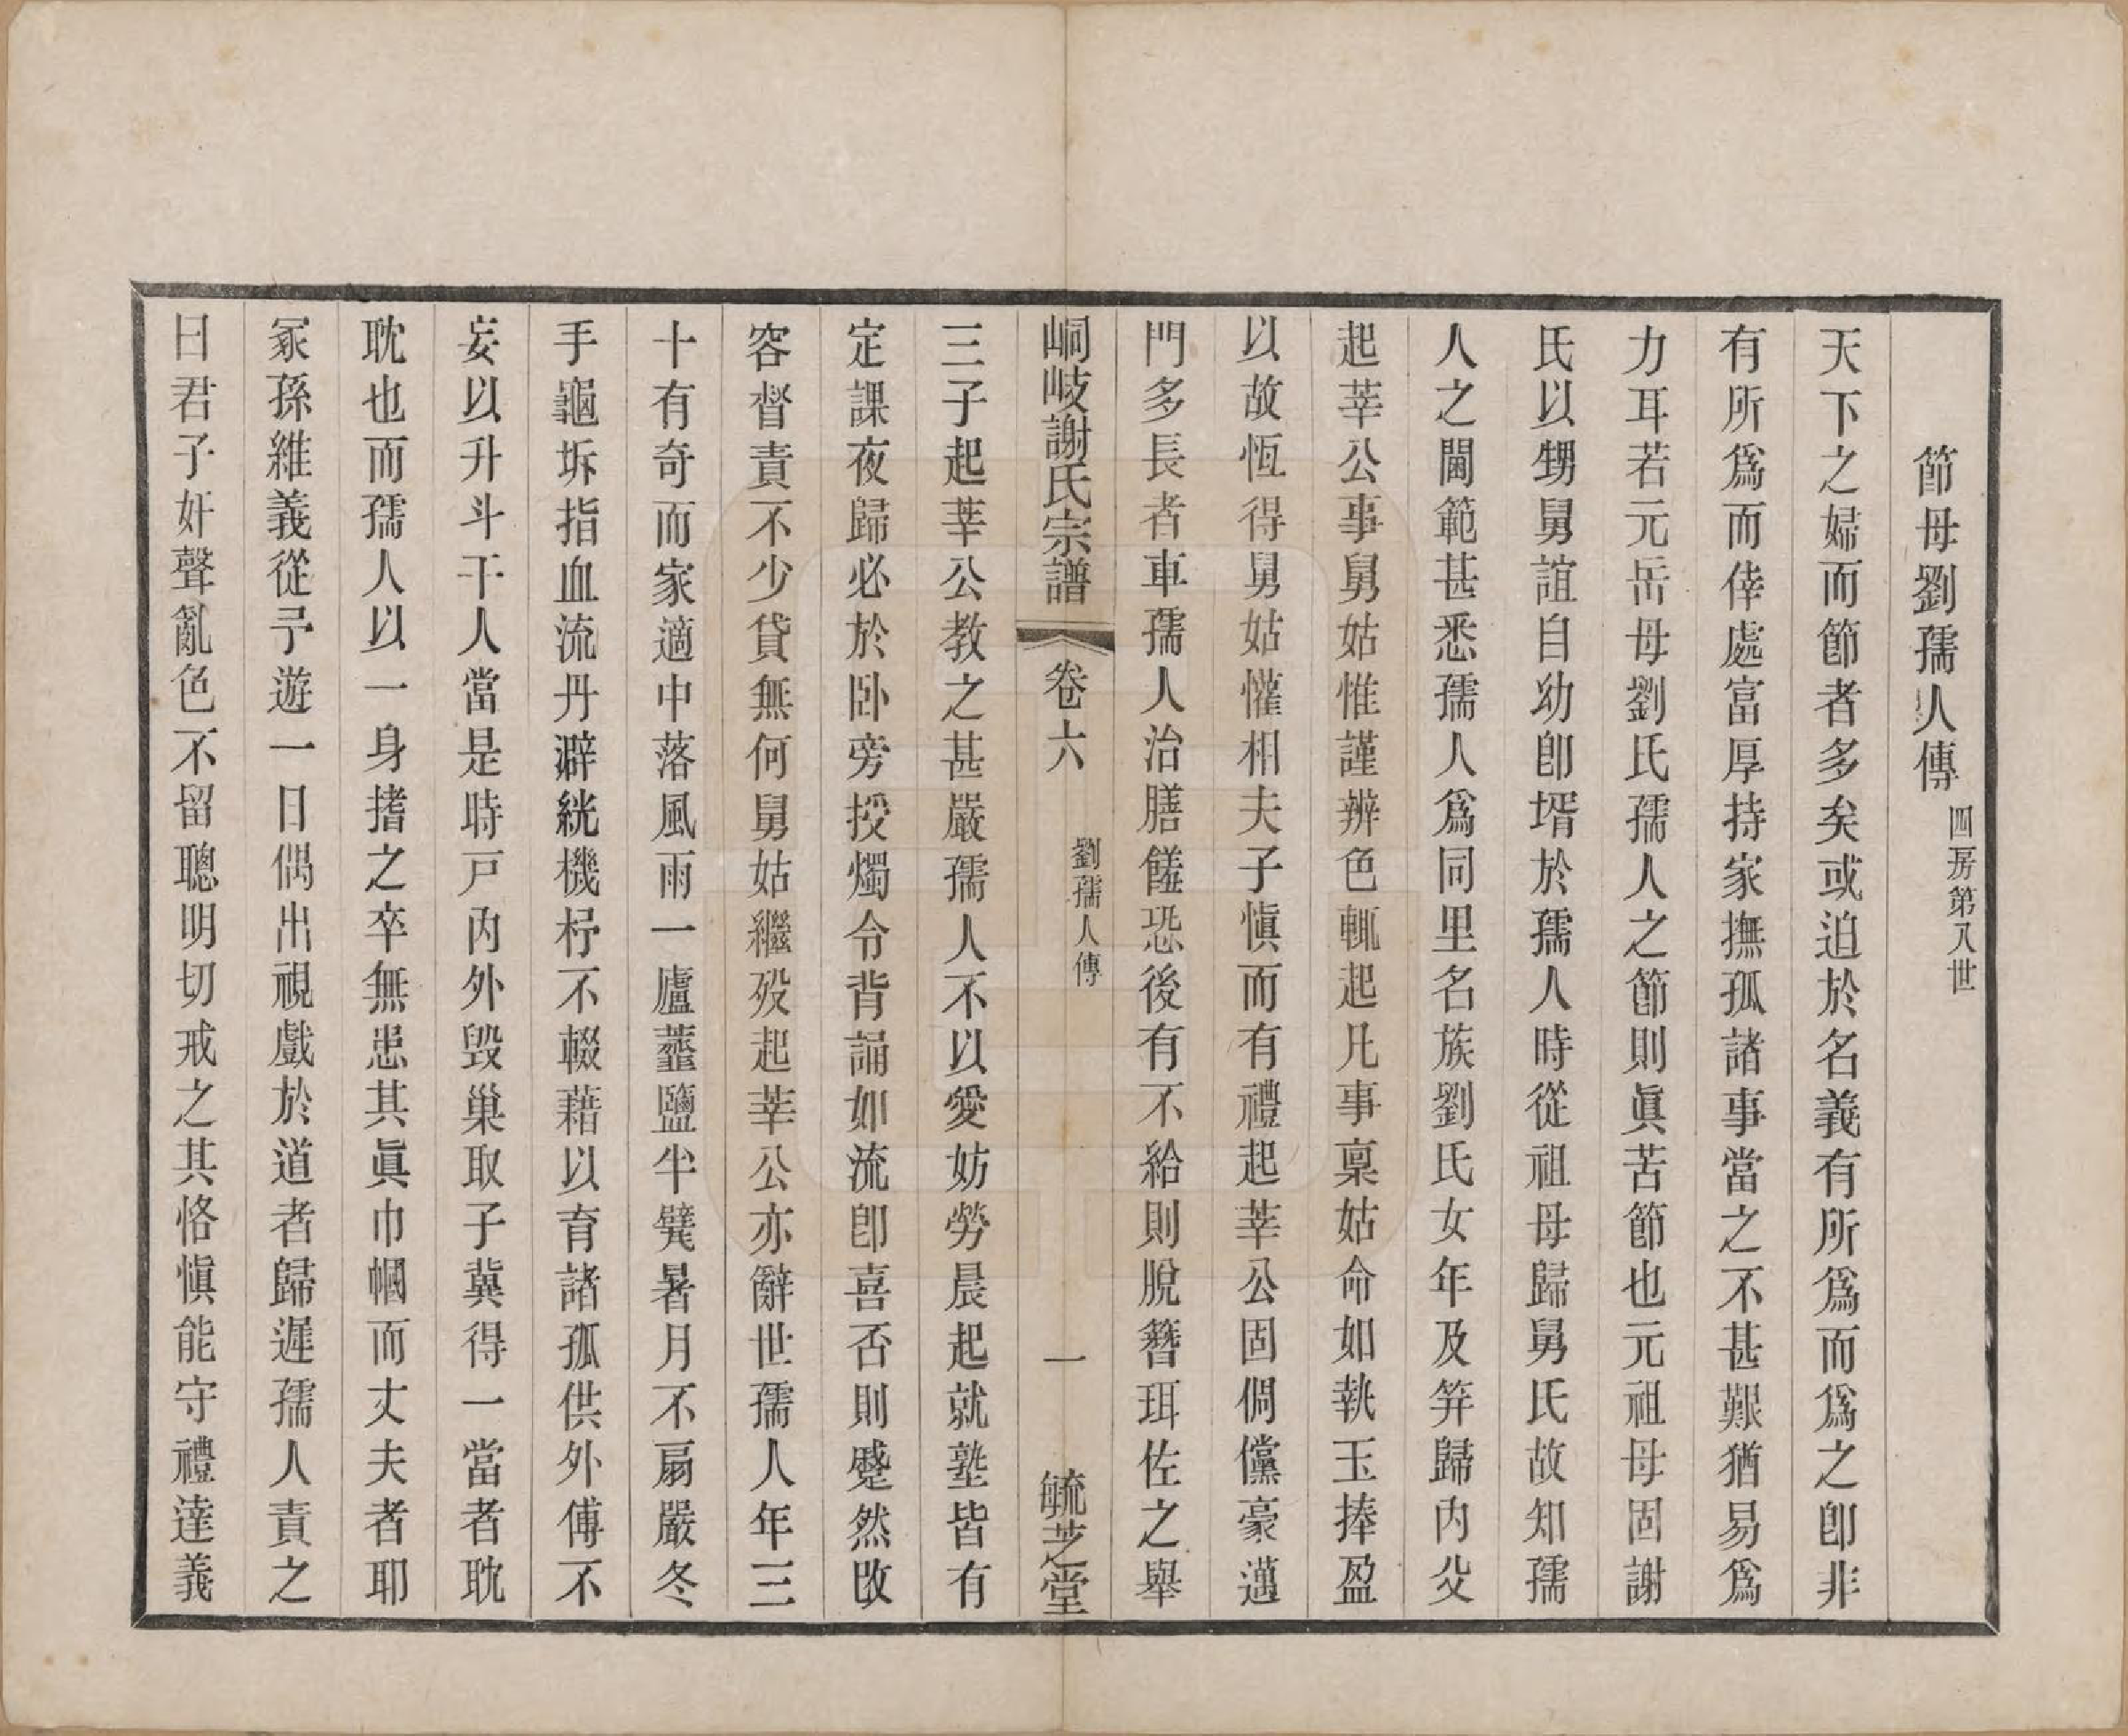 節母劉孺人傳 四房第八世
天下之婦而節者多矣或迫於名義有所爲而爲之卽非
有所爲而倖處富厚持家撫孤諸事當之不甚艱猶易爲
力耳若元岳母劉氏孺人之節則眞苦節也元祖母固謝
氏以甥舅誼自幼卽壻於孺人時從祖母歸舅氏故知孺
人之閫範甚悉孺人爲同里名族劉氏女年及笄歸內父
起莘公事舅姑惟謹辨色輒起凡事稟姑命如執玉捧盈
以故恆得舅姑懽相夫子愼而有禮起莘公固倜儻豪邁
門多長者車孺人治膳饈恐後有不給則脫簪珥佐之舉
峒岐謝氏宗譜 卷六 劉孺人傳 一 毓芝堂
三子起莘公教之甚嚴孺人不以愛妨勞晨起就塾皆有
定課夜歸必於卧旁授燭令背誦如流卽喜否則蹙然改
容督責不少貸無何舅姑繼歿起莘公亦辭世孺人年三
十有奇而家適中落風雨一廬虀鹽半甓暑月不扇嚴冬
手龜坼指血流丹澼絖機杼不輟藉以育諸孤供外傅不
妄以升斗干人當是時戸內外毀巢取子冀得一當者耽
耽也而孺人以一身揩之卒無恙其眞巾幗而丈夫者耶
冢孫維義從予遊一日偶出視戲於道者歸遲孺人責之
曰君子奸聲亂色不留聰明切戒之其恪愼能守禮達義